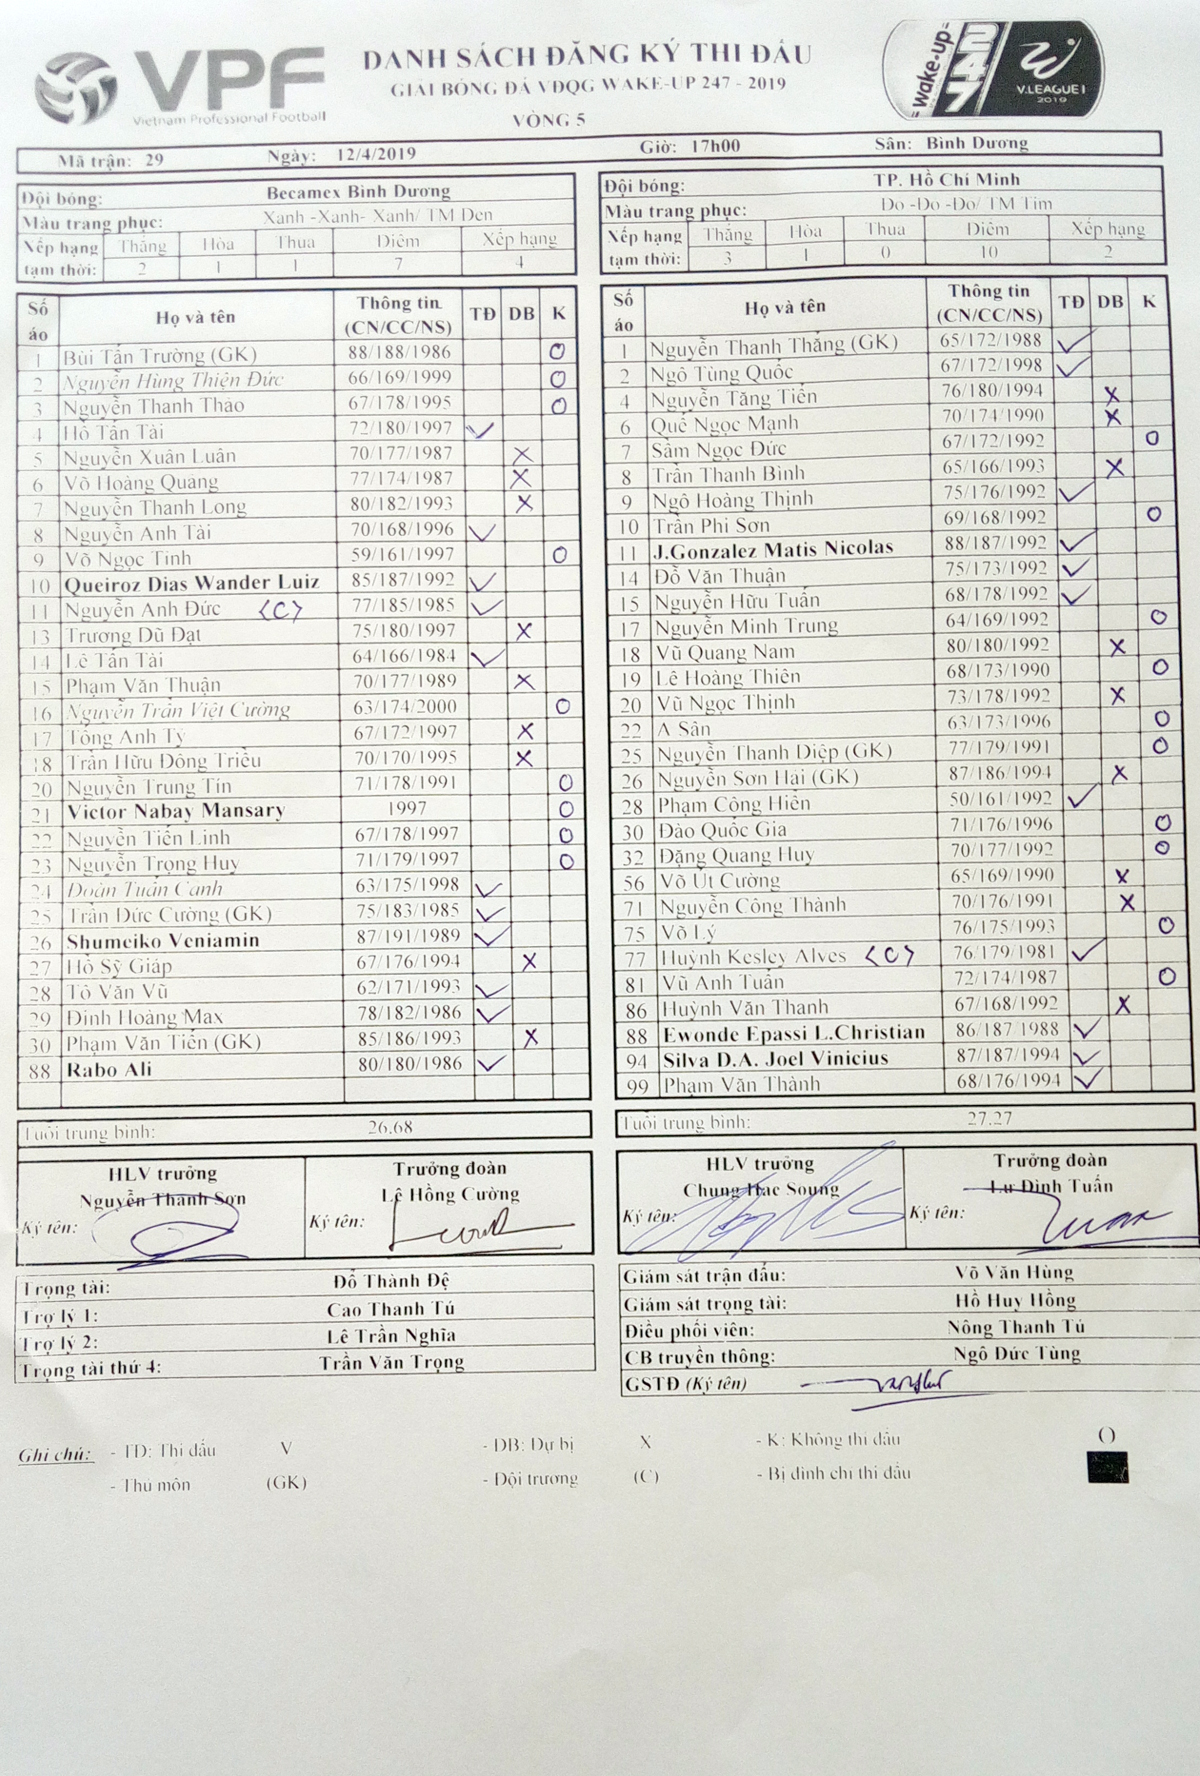 VPF
Vietnam Professional Football
DANH SÁCH ĐĂNG KÝ THI ĐẤU
GIẢI BÓNG ĐÁ VĐQG WAKE-UP 247 - 2019
VÒNG 5
wake-up 247
V.LEAGUE 1
2019
Mã trận: 29 Ngày: 12/4/2019 Giờ: 17h00 Sân: Bình Dương
Đội bóng: Becamex Bình Dương
Màu trang phục: Xanh -Xanh- Xanh/ TM Đen
Xếp hạng Thắng Hòa Thua Điểm Xếp hạng
tạm thời: 2 1 1 7 4
Số áo Họ và tên Thông tin (CN/CC/NS) TĐ DB K
1 Bùi Tấn Trường (GK) 88/188/1986 O
2 Nguyễn Hùng Thiện Đức 66/169/1999 O
3 Nguyễn Thanh Thảo 67/178/1995 O
4 Hồ Tấn Tài 72/180/1997 V
5 Nguyễn Xuân Luân 70/177/1987 X
6 Võ Hoàng Quảng 77/174/1987 X
7 Nguyễn Thanh Long 80/182/1993 X
8 Nguyễn Anh Tài 70/168/1996 V
9 Võ Ngọc Tỉnh 59/161/1997 O
10 Queiroz Dias Wander Luiz 85/187/1992 V
11 Nguyễn Anh Đức <C> 77/185/1985 V
13 Trương Dũ Đạt 75/180/1997 X
14 Lê Tấn Tài 64/166/1984 V
15 Phạm Văn Thuận 70/177/1989 X
16 Nguyễn Trần Việt Cường 63/174/2000 O
17 Tống Anh Tỷ 67/172/1997 X
18 Trần Hữu Đông Triều 70/170/1995 X
20 Nguyễn Trung Tín 71/178/1991 O
21 Victor Nabay Mansary 1997 O
22 Nguyễn Tiến Linh 67/178/1997 O
23 Nguyễn Trọng Huy 71/179/1997 O
24 Đoàn Tuấn Cảnh 63/175/1998 V
25 Trần Đức Cường (GK) 75/183/1985 V
26 Shumeiko Veniamin 87/191/1989 V
27 Hồ Sỹ Giáp 67/176/1994 X
28 Tô Văn Vũ 62/171/1993 V
29 Đinh Hoàng Max 78/182/1986 V
30 Phạm Văn Tiến (GK) 85/186/1993 X
88 Rabo Ali 80/180/1986 V
Tuổi trung bình: 26.68
HLV trưởng Trưởng đoàn
Nguyễn Thanh Sơn Lê Hồng Cường
Ký tên: Ký tên:
Trọng tài: Đỗ Thành Đệ
Trợ lý 1: Cao Thanh Tú
Trợ lý 2: Lê Trần Nghĩa
Trọng tài thứ 4: Trần Văn Trọng
Đội bóng: TP. Hồ Chí Minh
Màu trang phục: Đỏ -Đỏ -Đỏ/ TM Tím
Xếp hạng Thắng Hòa Thua Điểm Xếp hạng
tạm thời: 3 1 0 10 2
Số áo Họ và tên Thông tin (CN/CC/NS) TĐ DB K
1 Nguyễn Thanh Thắng (GK) 65/172/1988 V
2 Ngô Tùng Quốc 67/172/1998 V
4 Nguyễn Tăng Tiến 76/180/1994 X
6 Quế Ngọc Mạnh 70/174/1990 X
7 Sầm Ngọc Đức 67/172/1992 O
8 Trần Thanh Bình 65/166/1993 X
9 Ngô Hoàng Thịnh 75/176/1992 V
10 Trần Phi Sơn 69/168/1992 O
11 J.Gonzalez Matis Nicolas 88/187/1992 V
14 Đỗ Văn Thuận 75/173/1992 V
15 Nguyễn Hữu Tuấn 68/178/1992 V
17 Nguyễn Minh Trung 64/169/1992 O
18 Vũ Quang Nam 80/180/1992 X
19 Lê Hoàng Thiên 68/173/1990 O
20 Vũ Ngọc Thịnh 73/178/1992 X
22 A Sân 63/173/1996 O
25 Nguyễn Thanh Diệp (GK) 77/179/1991 O
26 Nguyễn Sơn Hải (GK) 87/186/1994 X
28 Phạm Công Hiển 50/161/1992 V
30 Đào Quốc Gia 71/176/1996 O
32 Đặng Quang Huy 70/177/1992 O
56 Võ Út Cường 65/169/1990 X
71 Nguyễn Công Thành 70/176/1991 X
75 Võ Lý 76/175/1993 O
77 Huỳnh Kesley Alves <C> 76/179/1981 V
81 Vũ Anh Tuấn 72/174/1987 O
86 Huỳnh Văn Thanh 67/168/1992 X
88 Ewonde Epassi L.Christian 86/187 1988 V
94 Silva D.A. Joel Vinicius 87/187/1994 V
99 Phạm Văn Thành 68/176/1994 V
Tuổi trung bình: 27.27
HLV trưởng Trưởng đoàn
Chung Hae Soung Lư Đình Tuấn
Ký tên: Ký tên:
Giám sát trận đấu: Võ Văn Hùng
Giám sát trọng tài: Hồ Huy Hồng
Điều phối viên: Nông Thanh Tú
CB truyền thông: Ngô Đức Tùng
GSTĐ (Ký tên)
Ghi chú: - TĐ: Thi đấu V - DB: Dự bị X - K: Không thi đấu O
- Thủ môn (GK) - Đội trưởng (C) - Bị đình chỉ thi đấu